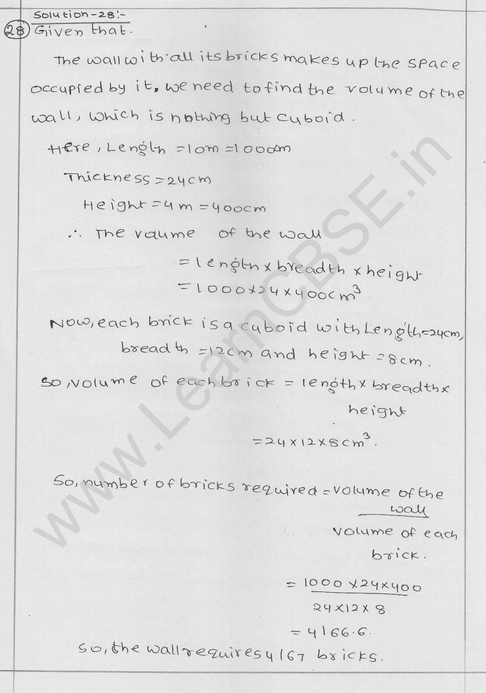 Solution-28:-
28 Given that.
The wall with all its bricks makes up the space
occupied by it, we need to find the volume of the
wall, which is nothing but cuboid.
Here, Length = 10m = 1000cm
Thickness = 24cm
Height = 4m = 400cm
∴ The vaume of the wall
= length x breadth x height
= 1000x24x400cm³
Now, each brick is a cuboid with Length=24cm,
breadth = 12cm and height = 8cm.
so, volume of each brick = length x breadth x
height
= 24x12x8cm³.
So, number of bricks required = volume of the
wall
volume of each
brick.
= 1000x24x400
24x12x8
= 4166.6
So, the wall requires 4167 bricks.
www.LearnCBSE.in